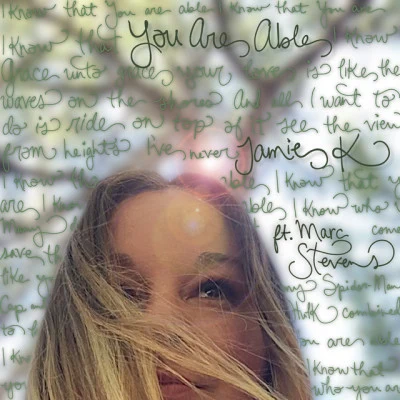 I know that You are able I know that You are
You Are Able
I know that I know
Grace unto grace your love is like the
waves on the shores And all I want to
do is ride on top of it see the view
from heights I've never
Jamie K
I know able I know that y
are I know ables I know who y
Many ft. Marc come
save Stevens
like yo my Spider Man
Cap an Hulk combined
are able
I know I know that
you who you are